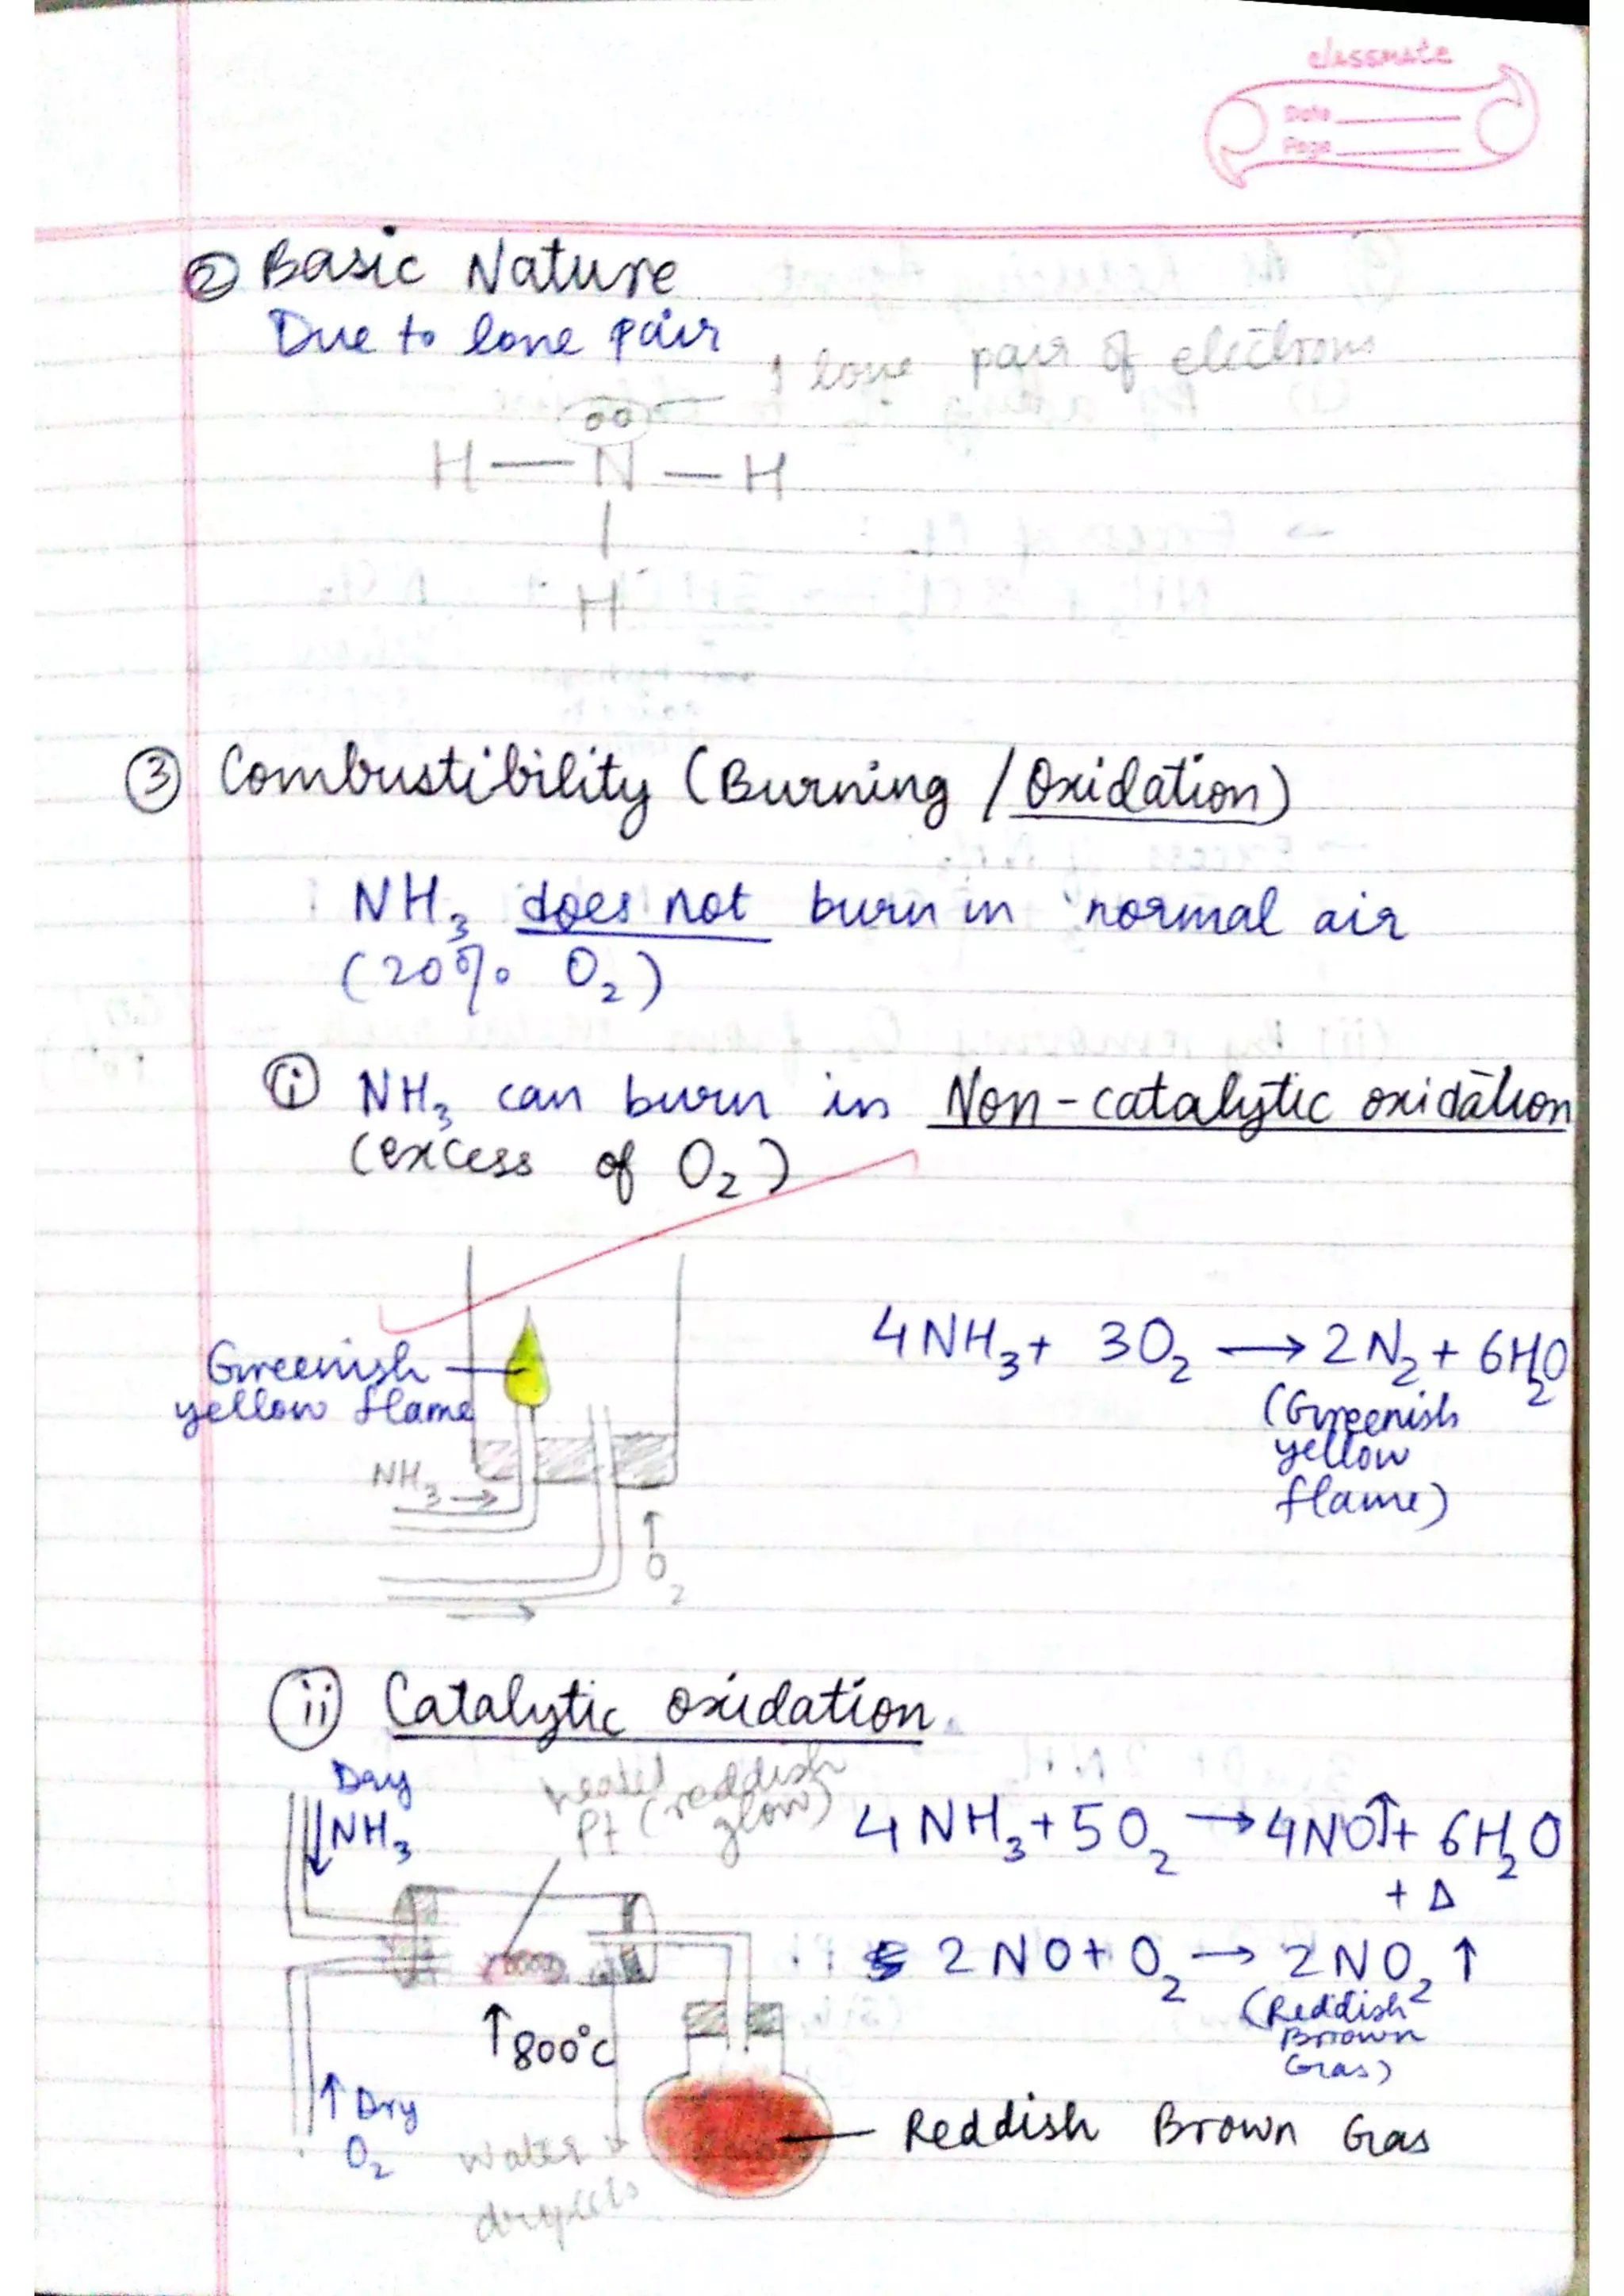 classmate
Date
Page
② Basic Nature
Due to lone pair
1 lone pair of electrons
H — N — H
H
③ Combustibility (Burning / Oxidation)
NH₃ does not burn in normal air
(20% O₂)
ⓘ NH₃ can burn in Non-catalytic oxidation
(excess of O₂)
Greenish
yellow flame
NH₃ →
↑
O₂
4NH₃ + 3O₂ → 2N₂ + 6H₂O
(Greenish
yellow
flame)
(ii) Catalytic oxidation
Dry
NH₃
heated
Pt (reddish
glow)
4NH₃ + 5O₂ → 4NO↑ + 6H₂O
+ Δ
2NO + O₂ → 2NO₂ ↑
(Reddish
Brown
Gas)
↑ 800°C
↑ Dry
O₂
Water
droplets
Reddish Brown Gas